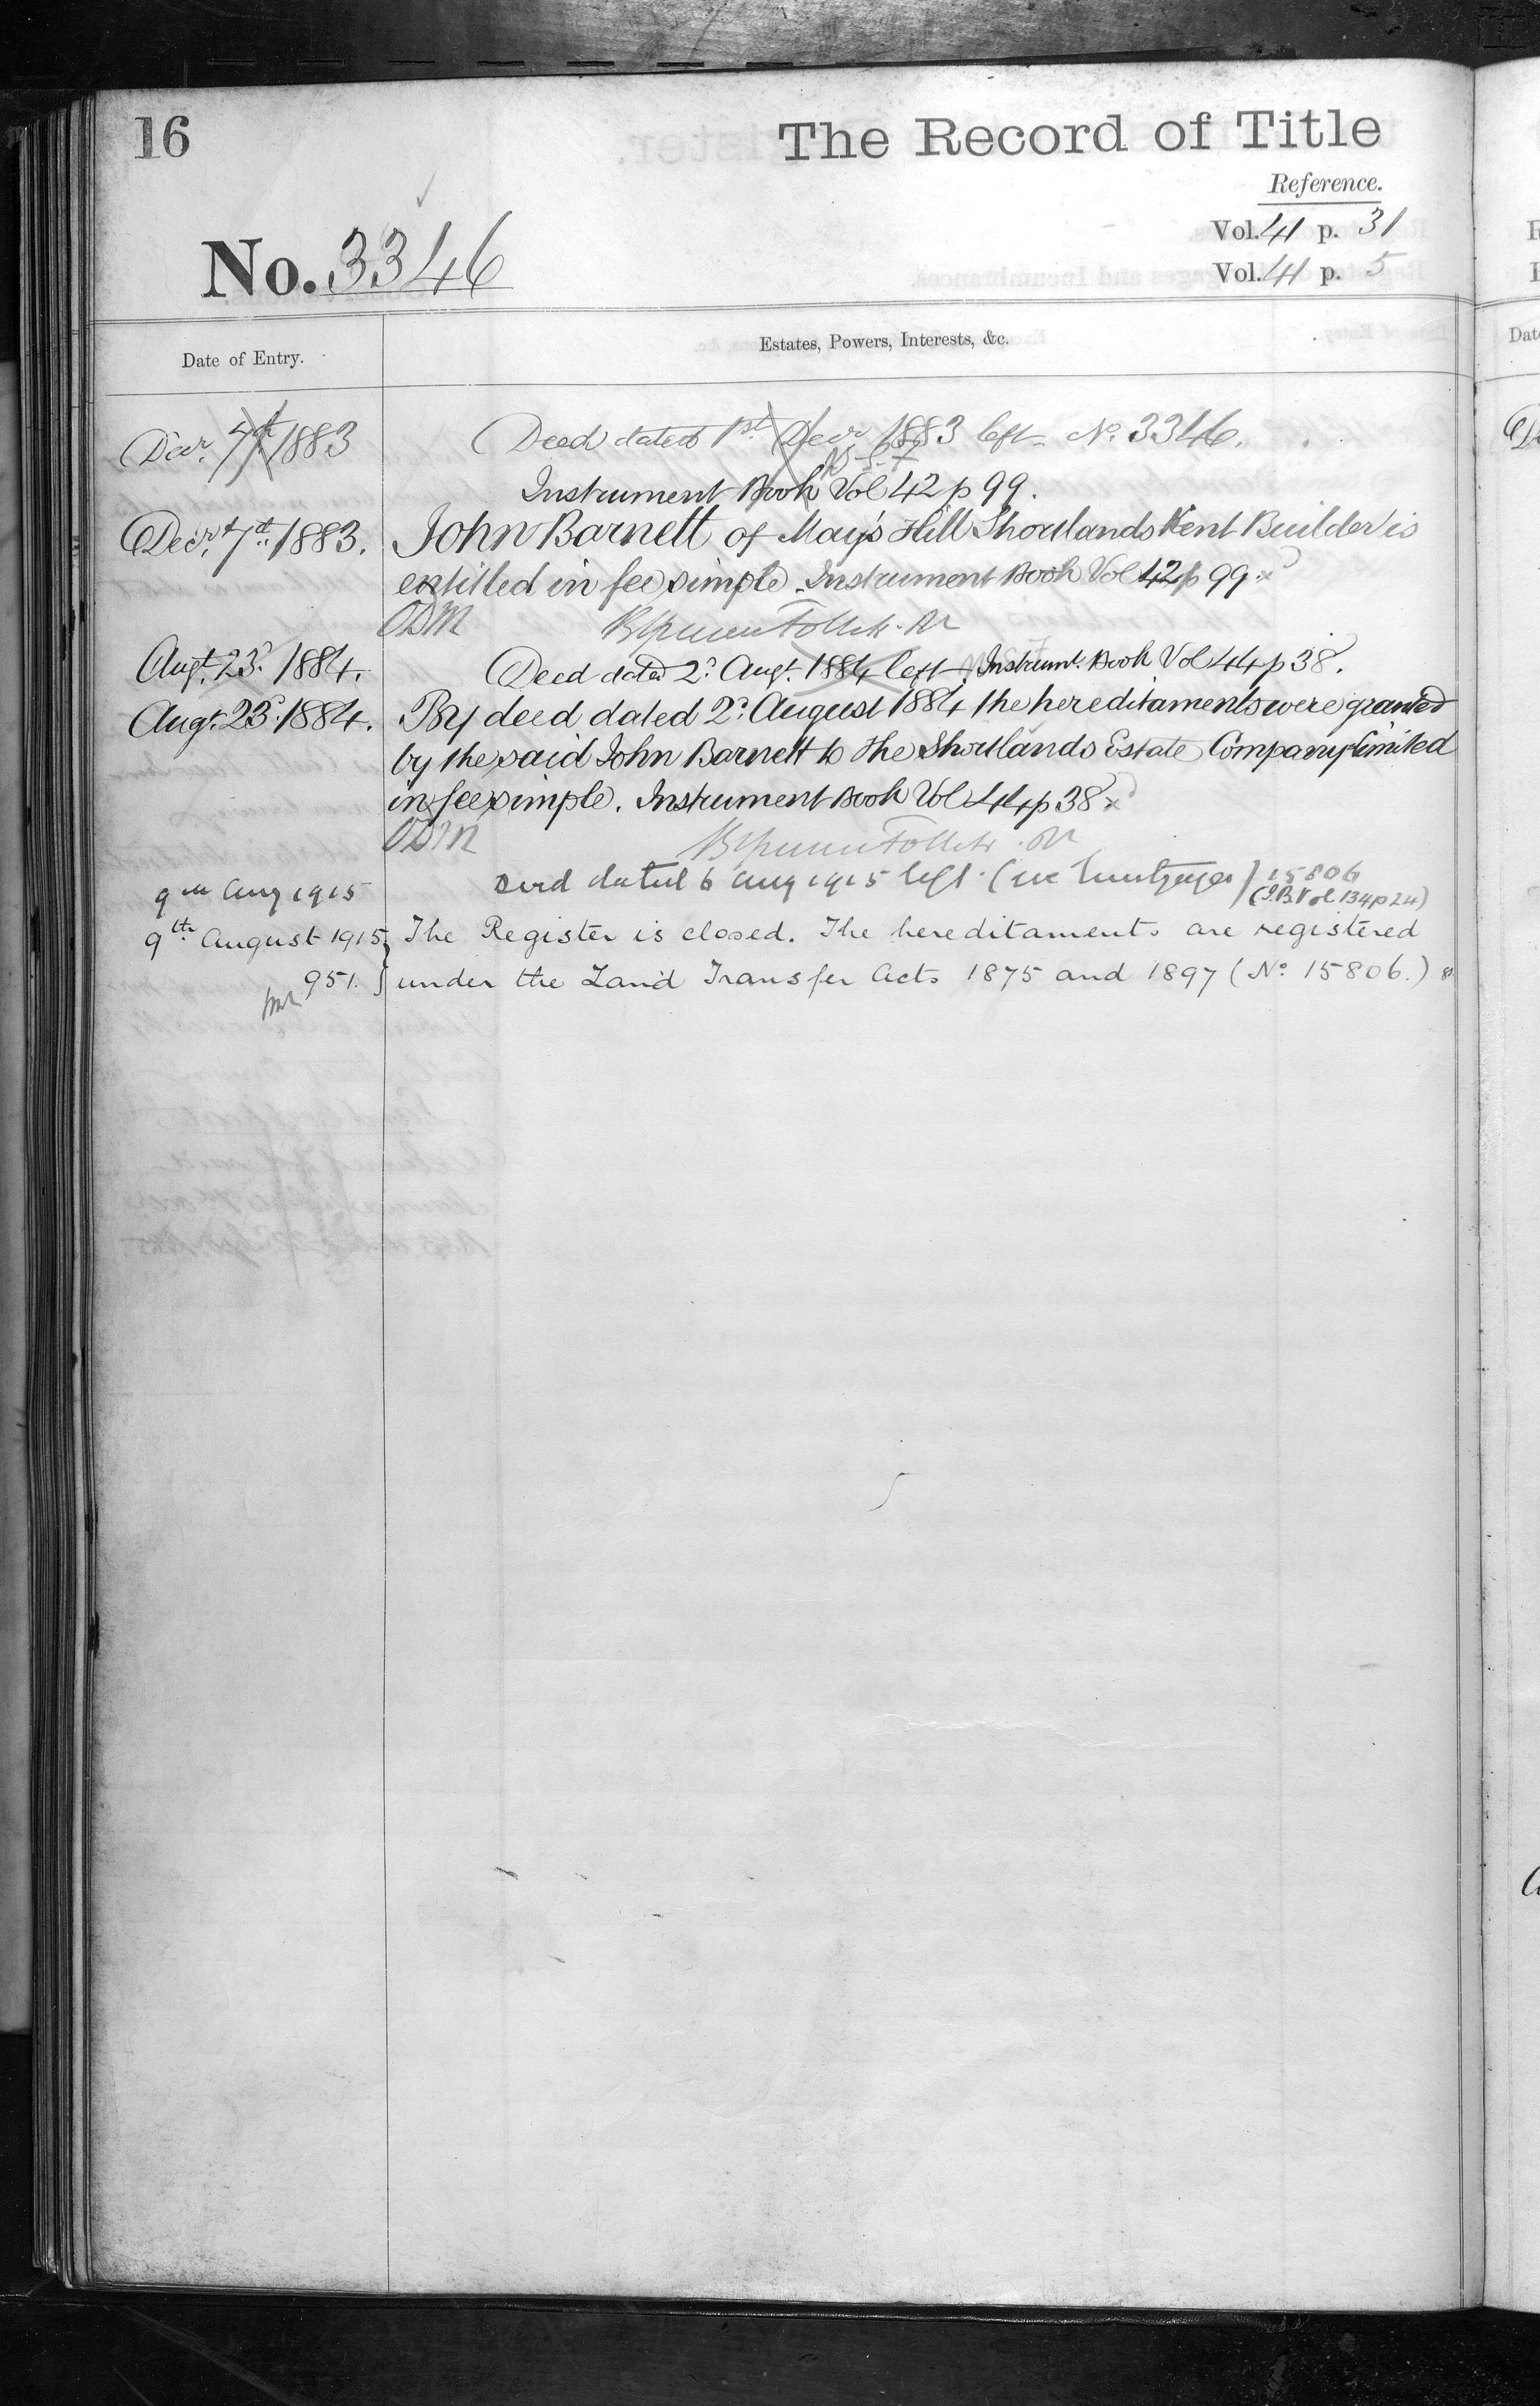 16
The Record of Title
Reference.
Vol. 41 p. 31
No. 3346
Vol. 41 p. 5
Date of Entry.
Estates, Powers, Interests, &c.
Decr. 7th 1883
Deed dated 1st Decr 1883 left No. 3346.
Instrument Book Vol 42 p 99.
Decr. 7th 1883.
John Barnett of May's Hill Shortlands Kent Builder is
entitled in fee simple. Instrument Book Vol 42 p 99.
ODM
Augt. 23d. 1884.
Deed dated 2d. Augt. 1884 left Instrumt. Book Vol 44 p 38.
Augt. 23d. 1884.
By deed dated 2d. August 1884 the hereditaments were granted
by the said John Barnett to the Shortlands Estate Company Limited
in fee simple. Instrument Book Vol 44 p 38
ODM
9th Aug 1915
Deed dated 6 Aug 1915 left. 15806
(I.B. Vol 134 p 24)
9th August 1915
The Register is closed. The hereditaments are registered
951.
under the Land Transfer Acts 1875 and 1897 (No. 15806.)
Date